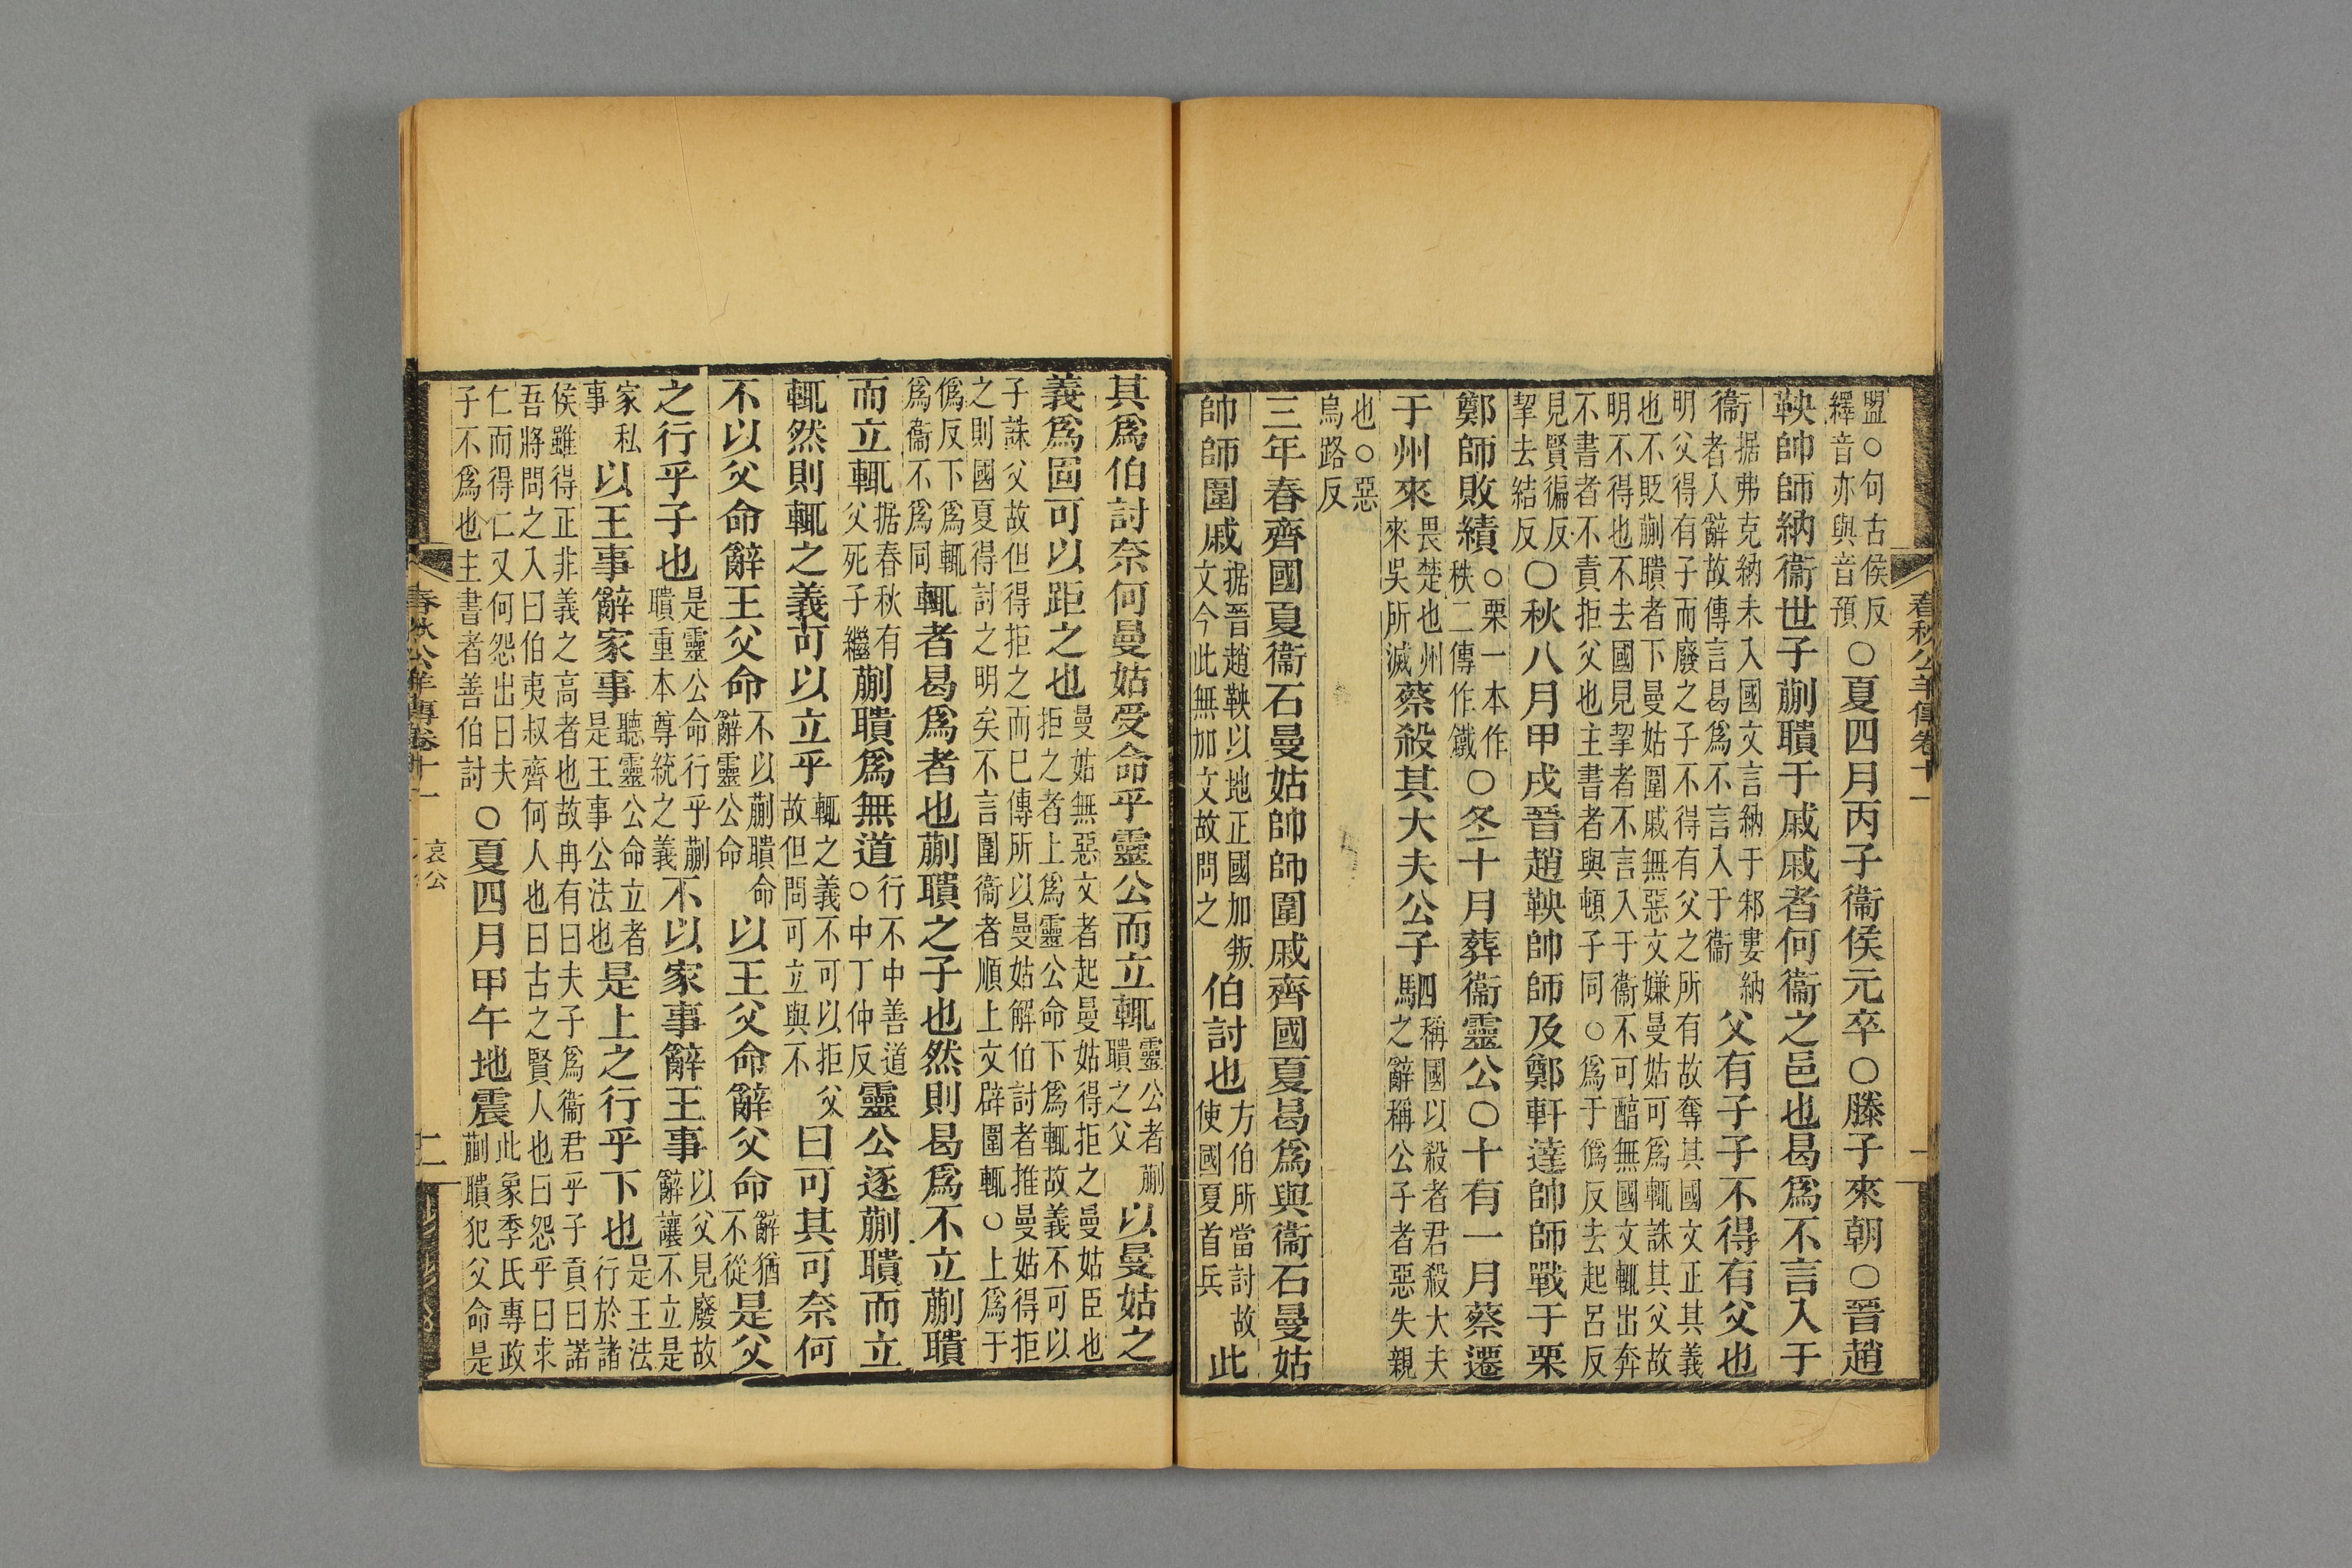 盟○句古侯反
繹音亦與音預○夏四月丙子衞侯元卒○滕子來朝○晉趙
鞅帥師納衞世子蒯聵于戚戚者何衞之邑也曷爲不言入于
衞据弗克納未入國文言納于邾婁納
者入辭故傳言曷爲不言入于衞父有子子不得有父也
明父得有子而廢之子不得有父之所有故奪其國文正其義
也不貶蒯聵者下曼姑圍戚無惡文嫌曼姑可爲輒誅其父故
明不得也不去國見挈者不言入于衞不可醕無國文輒出奔
不書者不責拒父也主書者與頓子同○爲于僞反去起呂反
見賢徧反
挈去結反○秋八月甲戌晉趙鞅帥師及鄭軒達帥師戰于栗
鄭師敗績○栗一本作
秩二傳作鐵○冬十月葬衞靈公○十有一月蔡遷
于州來畏楚也州
來吳所滅蔡殺其大夫公子駟稱國以殺者君殺大夫
之辭稱公子者惡失親
也○惡
烏路反
三年春齊國夏衞石曼姑帥師圍戚齊國夏曷爲與衞石曼姑
帥師圍戚据晉趙鞅以地正國加叛
文今此無加文故問之伯討也方伯所當討故
使國夏首兵此
其爲伯討奈何曼姑受命乎靈公而立輒靈公者蒯
聵之父以曼姑之
義爲固可以距之也曼姑無惡文者起曼姑得拒之曼姑臣也
拒之者上爲靈公命下爲輒故義不可以
子誅父故但得拒之而已傳所以曼姑解伯討者推曼姑得拒
之則國夏得討之明矣不言圍衞者順上文辟圍輒○上爲于
僞反下爲輒
爲衞不爲同輒者曷爲者也蒯聵之子也然則曷爲不立蒯聵
而立輒据春秋有
父死子繼蒯聵爲無道行不中善道
○中丁仲反靈公逐蒯聵而立
輒然則輒之義可以立乎輒之義不可以拒父
故但問可立與不曰可其可奈何
不以父命辭王父命不以蒯聵命
辭靈公命以王父命辭父命辭猶
不從是父
之行乎子也是靈公命行乎蒯
聵重本尊統之義不以家事辭王事以父見廢故
辭讓不立是
家私
事以王事辭家事聽靈公命立者
是王事公法也是上之行乎下也是王法
行於諸
侯雖得正非義之高者也故冉有曰夫子爲衞君乎子貢曰諾
吾將問之入曰伯夷叔齊何人也曰古之賢人也曰怨乎曰求
仁而得仁又何怨出曰夫
子不爲也主書者善伯討○夏四月甲午地震此象季氏專政
蒯聵犯父命是
春秋公羊傳卷十一
一
春秋公羊傳卷十一
哀公
二